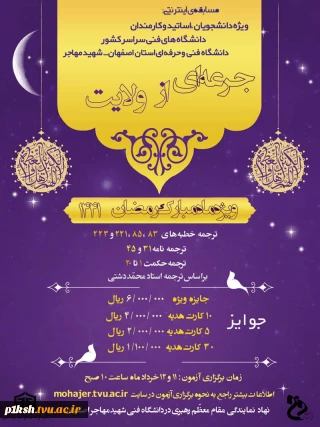 مسابقه‌ی اینترنتی:
ویژه دانشجویان، اساتید و کارمندان
دانشگاه های فنی سراسر کشور
دانشگاه فنی و حرفه ای استان اصفهان - شهید مهاجر
جرعه‌ای از ولایت
ویژه ماه مبارک رمضان ۱۴۴۱
ترجمه خطبه های ۸۳، ۸۵، ۲۲۱ و ۲۲۳
ترجمه نامه ۳۱ و ۴۵
ترجمه حکمت ۱ تا ۲۰
براساس ترجمه استاد محمد دشتی
جوایز
جایزه ویژه ۶/۰۰۰/۰۰۰ ریال
۱۰ کارت هدیه ۴/۰۰۰/۰۰۰ ریال
۵ کارت هدیه ۲/۰۰۰/۰۰۰ ریال
۳۰ کارت هدیه ۱/۱۰۰/۰۰۰ ریال
زمان برگزاری آزمون: ۱۱ و ۱۲ خرداد ماه ساعت ۱۰ صبح
اطلاعات بیشتر راجع به نحوه برگزاری آزمون در سایت mohajer.tvu.ac.ir
نهاد نمایندگی مقام معظم رهبری در دانشگاه فنی شهید مهاجر
p1ksh.tvu.ac.ir